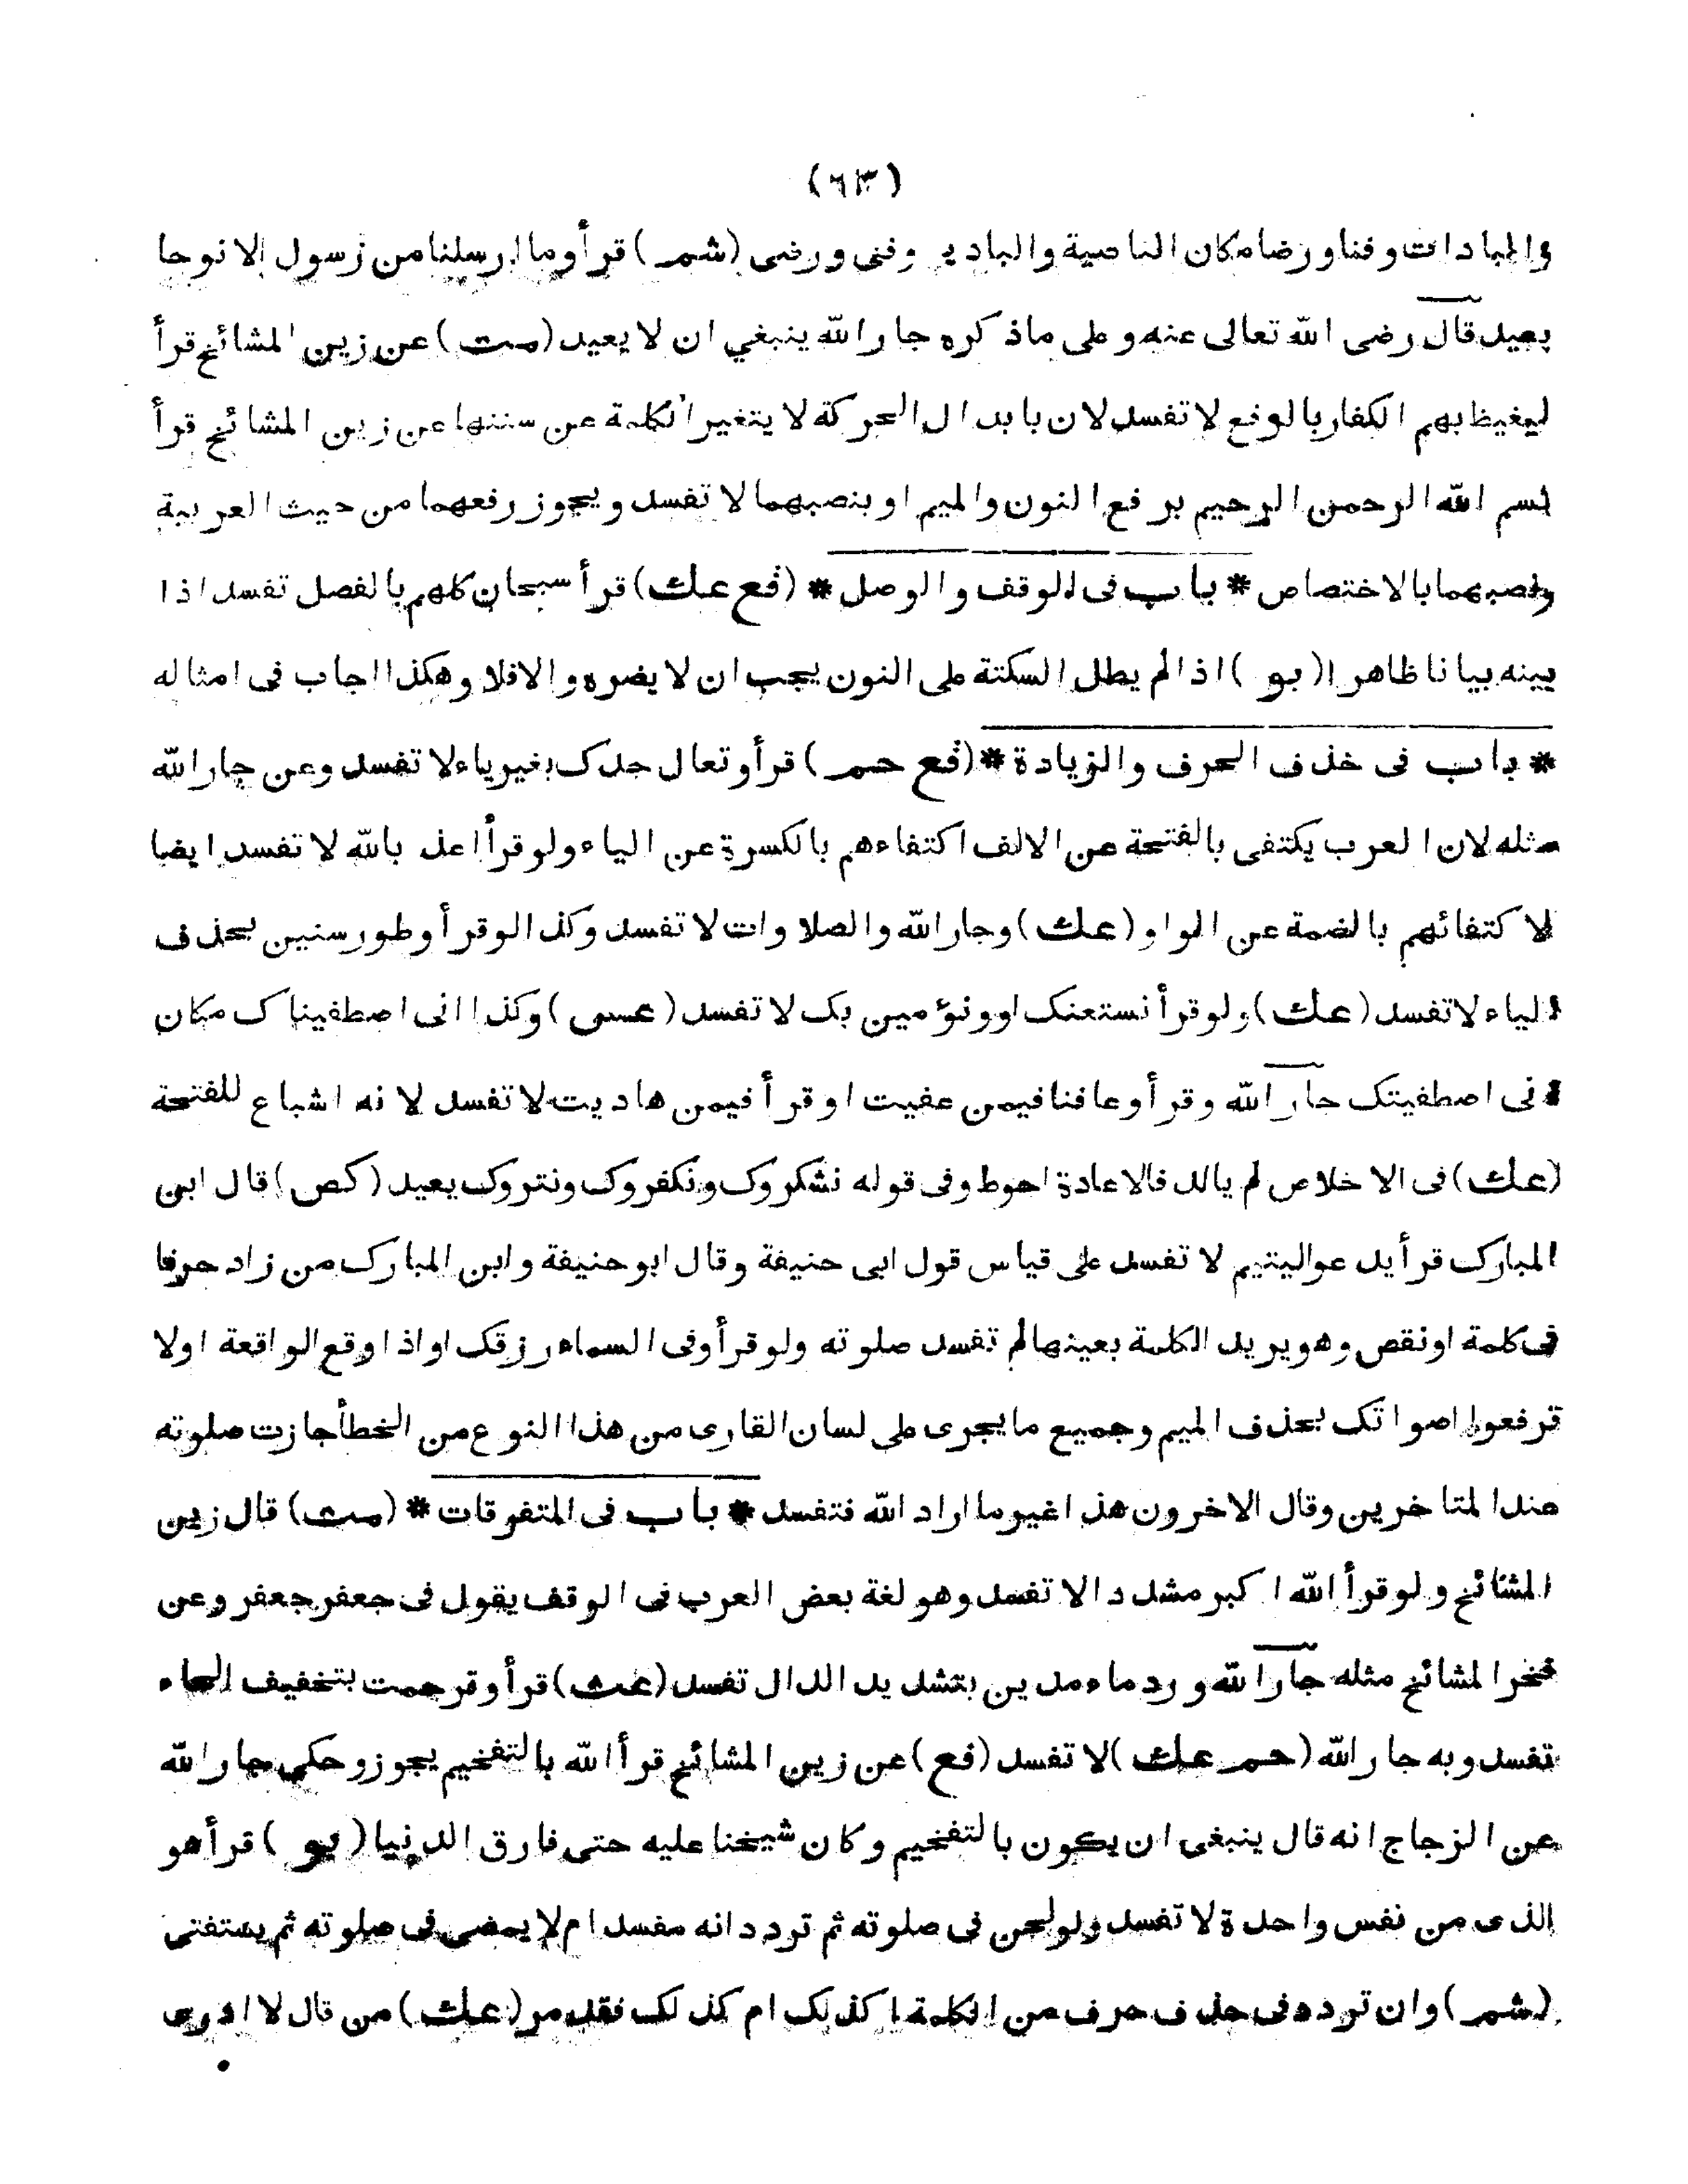 (٦٣)
والبادات وفنا ورضا مكان الناصية والبادية وفنى ورضى (شمـ) قرأ وما ارسلنا من رسول الا نوحا
يعيد قال رضى الله تعالى عنه وعلى ماذكره جار الله ينبغي ان لا يعيد (مت) عن زين المشائخ قرأ
ليغيظ بهم الكفار بالرفع لا تفسد لان بابدال الحركة لا يتغير الكلمة عن سننها عن زين المشائخ قرأ
بسم الله الرحمن الرحيم برفع النون والميم او بنصبهما لا تفسد ويجوز رفعهما من حيث العربية
ونصبهما بالاختصاص * باب فى الوقف والوصل * (فع عك) قرأ سبحان كلهم بالفصل تفسد اذا
بينه بيانا ظاهرا (بو) اذا لم يطل السكتة على النون يجب ان لا يضره والا فلا وهكذا اجاب فى امثاله
* باب فى حذف الحرف والزيادة * (فع حمـ) قرأ وتعال جدك بغير ياء لا تفسد وعن جار الله
مثله لان العرب يكتفى بالفتحة عن الالف اكتفاءهم بالكسرة عن الياء ولو قرأ اعذ بالله لا تفسد ايضا
لاكتفائهم بالضمة عن الواو (عك) وجار الله والصلاوات لا تفسد وكذا لو قرأ وطور سنين بحذف
الياء لا تفسد (عك) ولو قرأ نستعنك او ونؤمين بك لا تفسد (عسى) وكذا انى اصطفيناك مكان
انى اصطفيتك جار الله وقرأ وعافنا فيمن عفيت او قرأ فيمن هاديت لا تفسد لانه اشباع للفتحة
(عك) فى الاخلاص لم يالد فالاعادة احوط وفى قوله نشكروك ونكفروك ونتروك يعيد (كص) قال ابن
المبارك قرأ يدعو اليتيم لا تفسد على قياس قول ابى حنيفة وقال ابو حنيفة وابن المبارك من زاد حرفا
فى كلمة او نقص وهو يريد الكلمة بعينها لم تفسد صلوته ولو قرأ وفى السماء رزقك او اذا وقع الواقعة او لا
ترفعوا اصواتك بحذف الميم وجميع ما يجرى على لسان القارى من هذا النوع من الخطأ جازت صلوته
عند المتاخرين وقال الاخرون هذا غير ما اراد الله فتفسد * باب فى المتفرقات * (مت) قال زين
المشائخ ولو قرأ الله اكبر مشددا لا تفسد وهو لغة بعض العرب فى الوقف يقول فى جعفر جعفر وعن
فخر المشائخ مثله جار الله ورد ماء مدين بتشديد الدال تفسد (عث) قرأ وقر حمت بتخفيف الحاء
تفسد وبه جار الله (حمـ عك) لا تفسد (فع) عن زين المشائخ قرأ الله بالتفخيم يجوز وحكى جار الله
عن الزجاج انه قال ينبغى ان يكون بالتفخيم وكان شيخنا عليه حتى فارق الدنيا (بو) قرأ هو
الذى من نفس واحدة لا تفسد ولو لحن فى صلوته ثم تردد انه مفسد ام لا يمضى فى صلوته ثم يستفتى
(شمـ) وان تردد فى حذف حرف من الكلمة اكذلك ام كذلك فقد مر (عك) من قال لا ادرى